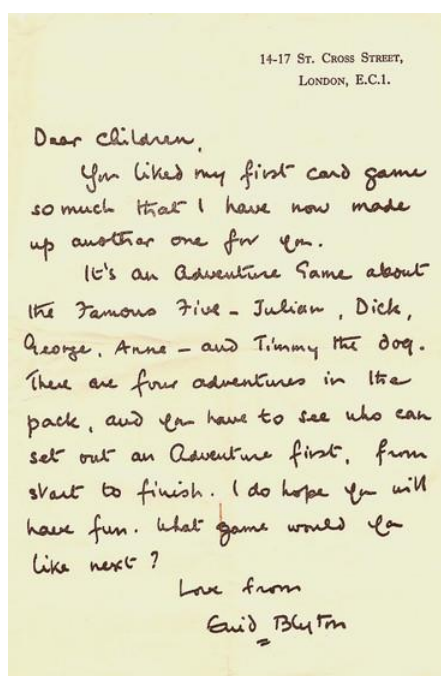 14-17 ST. CROSS STREET,
LONDON, E.C.1.
Dear Children,
You liked my first card game
so much that I have now made
up another one for you.
It's an Adventure Game about
the Famous Five - Julian, Dick,
George, Anne - and Timmy the dog.
There are four adventures in the
pack, and you have to see who can
set out an Adventure first, from
start to finish. I do hope you will
have fun. What game would you
like next?
Love from
Enid Blyton